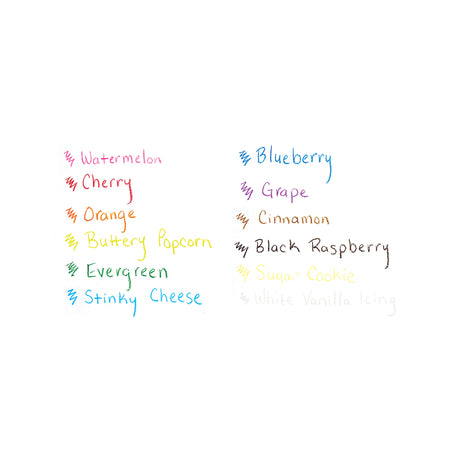 Watermelon
Cherry
Orange
Buttery Popcorn
Evergreen
Stinky Cheese
Blueberry
Grape
Cinnamon
Black Raspberry
Sugar Cookie
White Vanilla Icing